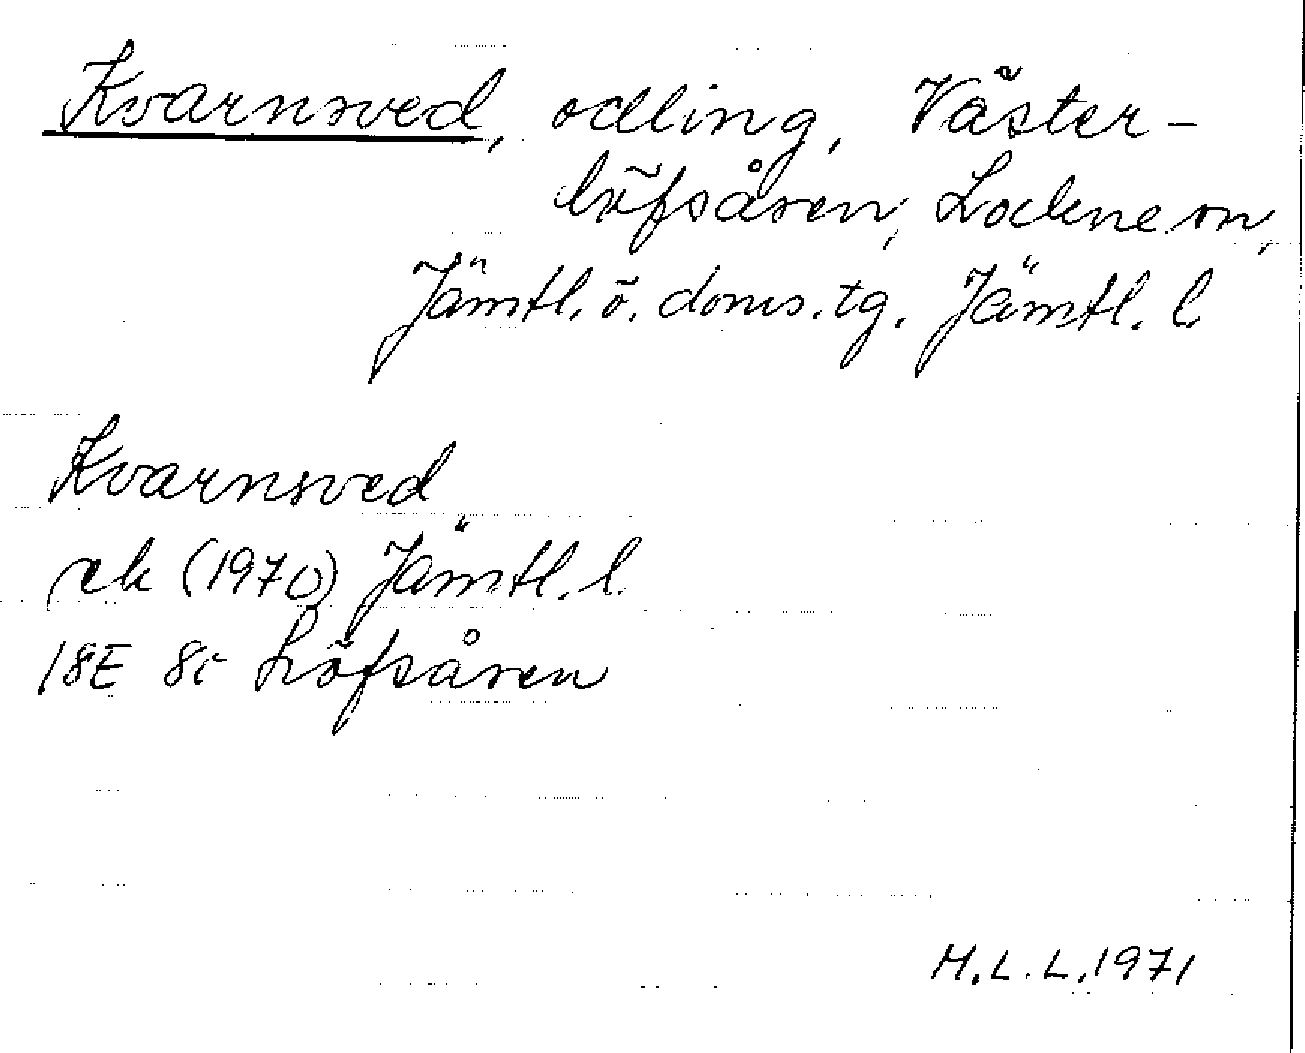 Kvarnsved, odling, Väster-
löfsåsen, Lockne sn,
Jämtl. ö. doms. tg. Jämtl. l.
Kvarnsved
ek (1970) Jämtl. l.
18E 8c Löfsåsen
M.L.L. 1971